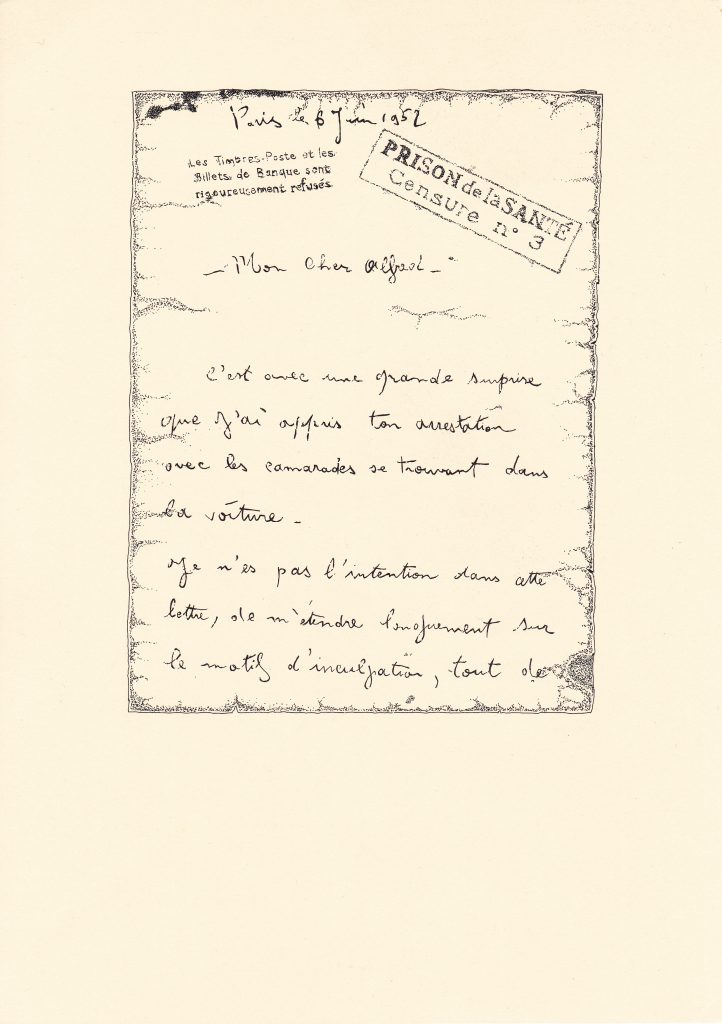 Paris le 6 Juin 1952
Les Timbres-Poste et les
Billets de Banque sont
rigoureusement refusés
PRISON de la SANTÉ
Censure n° 3
- Mon Cher Alfred -
C'est avec une grande surprise
que j'ai appris ton arrestation
avec les camarades se trouvant dans
la voiture -
Je n'es pas l'intention dans cette
lettre, de m'étendre longuement sur
le motif d'inculpation, tout de